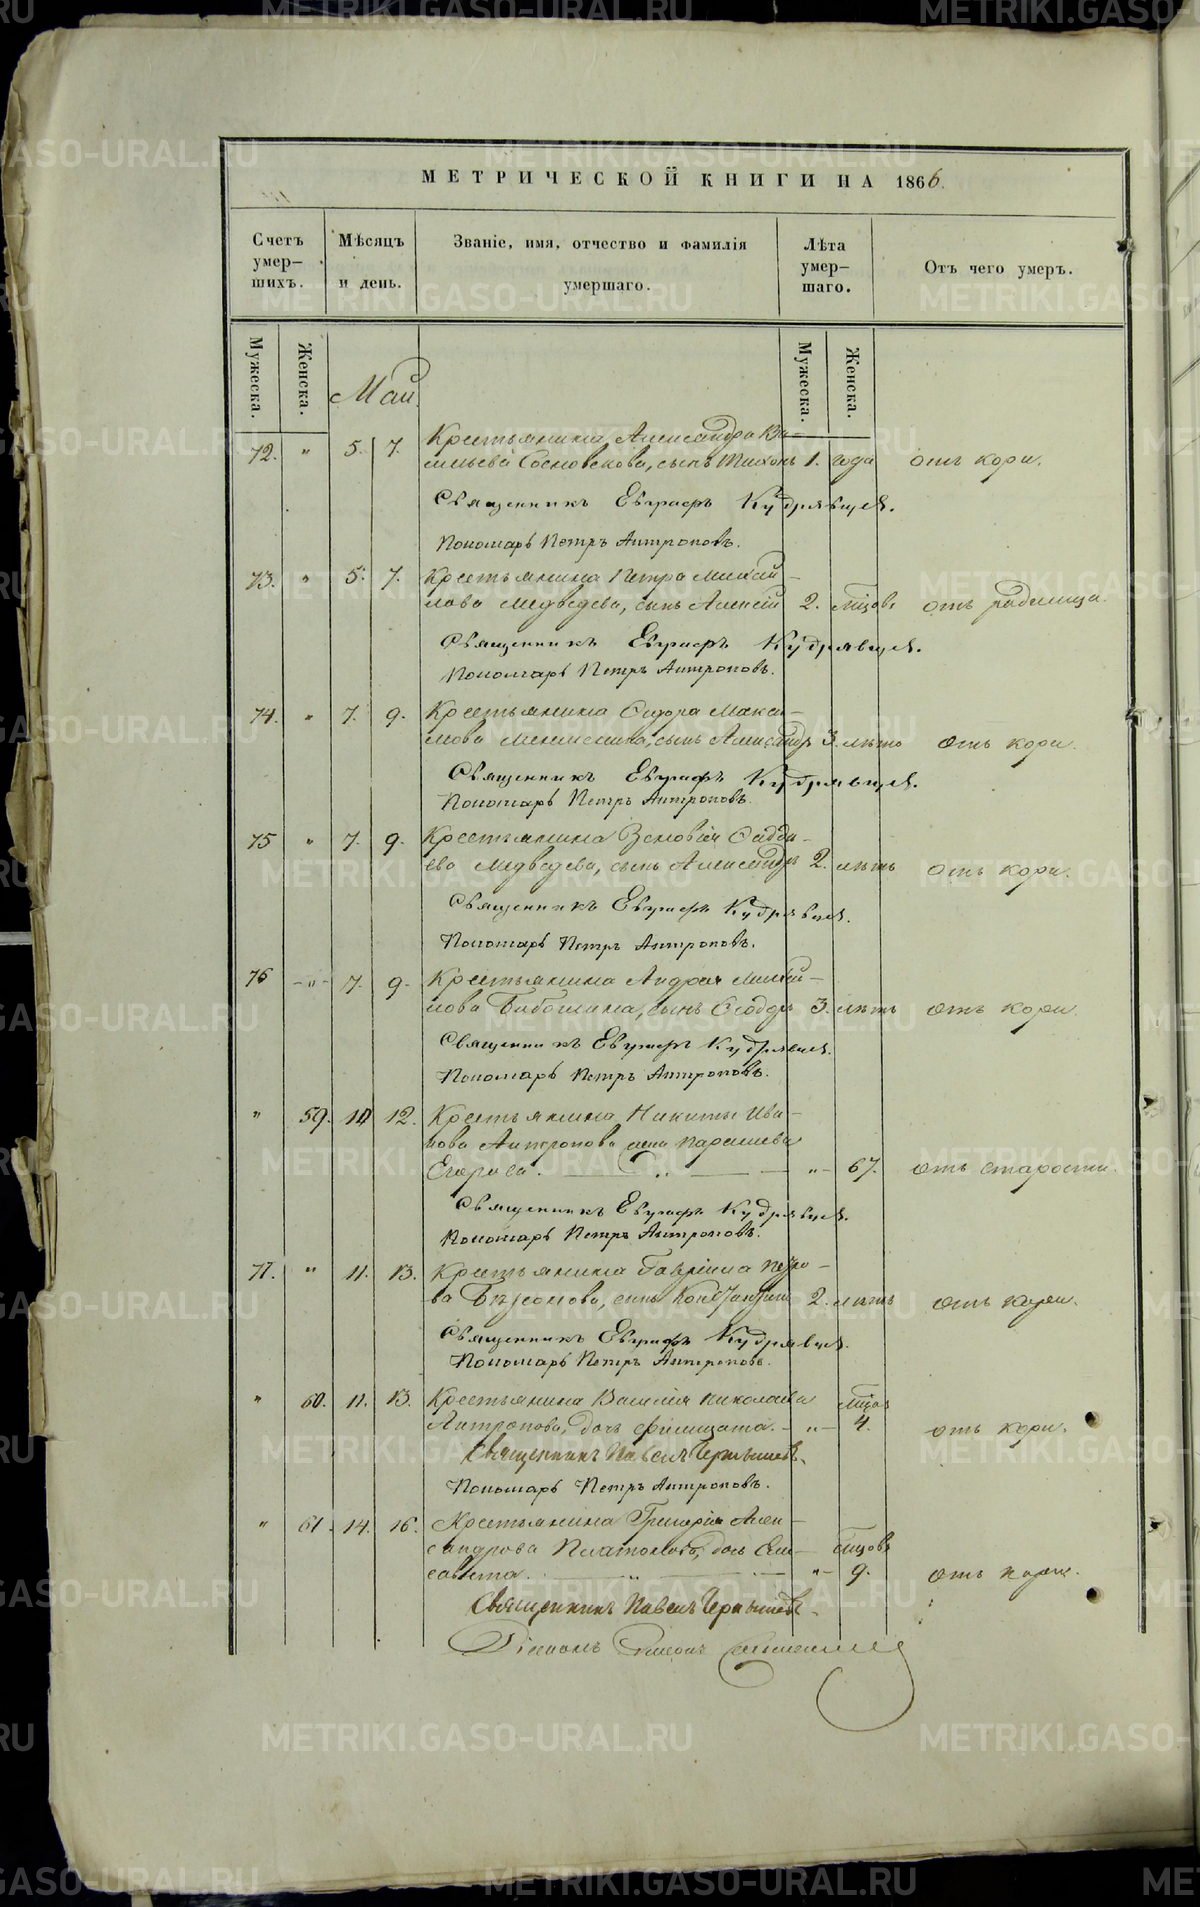 МЕТРИЧЕСКОЙ КНИГИ НА 1866.
Счетъ умер—шихъ.
Мѣсяцъ и день.
Званіе, имя, отчество и фамилія умершаго.
Лѣта умер—шаго.
Отъ чего умеръ.
Мужеска.
Женска.
Мужеска.
Женска.
Май
72. " 5. 7. Крестьянина Александра Ва-
сильева Сосновскова, сынъ Тихонъ 1. года отъ кори.
Священникъ Евграфъ Кудрявцев.
Пономарь Петръ Антроповъ.
73. " 5. 7. Крестьянина Петра Михай-
лова Медведева, сынъ Алексѣй 2. мѣсяцовъ отъ родимца.
Священникъ Евграфъ Кудрявцев.
Пономарь Петръ Антроповъ.
74. " 7. 9. Крестьянина Сидора Макси-
мова сынъ Александръ 3. лѣтъ отъ кори.
Священникъ Евграфъ Кудрявцев.
Пономарь Петръ Антроповъ.
75 " 7. 9. Крестьянина Зеновія Фадде-
ева Медведева, сынъ Александръ 2. лѣтъ отъ кори.
Священникъ Евграфъ Кудрявцев.
Пономарь Петръ Антроповъ.
76 " 7. 9. Крестьянина Андрея Михай-
лова сынъ Ѳеодоръ 3. лѣтъ отъ кори.
Священникъ Евграфъ Кудрявцев.
Пономарь Петръ Антроповъ.
" 59. 10 12. Крестьянина Никиты Ива-
нова Антропова жена Парасковья
Егорова. " 67. отъ старости.
Священникъ Евграфъ Кудрявцев.
Пономарь Петръ Антроповъ.
77. " 11. 13. Крестьянина Гавріила Петро-
ва сынъ Константинъ 2. лѣтъ отъ кори.
Священникъ Евграфъ Кудрявцев.
Пономарь Петръ Антроповъ.
" 60. 11. 13. Крестьянина Василія Николаева
Антропова, дочь Филицата. " 4. отъ кори.
Священникъ Павелъ Чернышевъ.
Пономарь Петръ Антроповъ.
" 61. 14. 16. Крестьянина Григорія Алек-
сандрова Платонова, дочь Ели-
савета. " 9. отъ кори.
Священникъ Павелъ Чернышевъ.
Діаконъ
METRIKI.GASO-URAL.RU